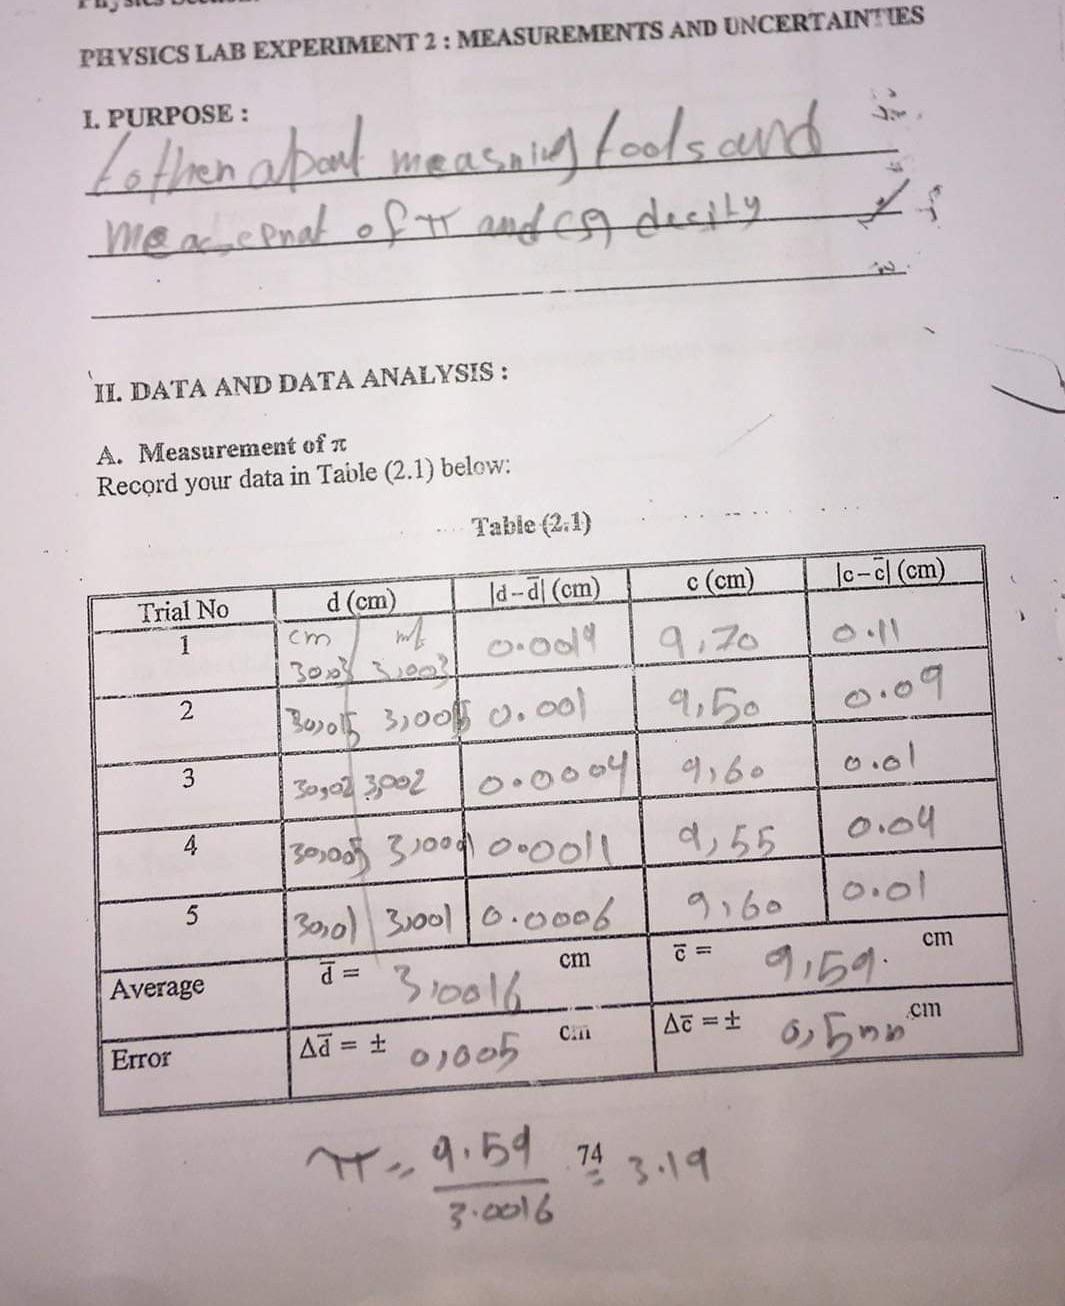 PHYSICS LAB EXPERIMENT 2 : MEASUREMENTS AND UNCERTAINTIES
I. PURPOSE :
tools and
of π and decity
II. DATA AND DATA ANALYSIS :
A. Measurement of π
Record your data in Table (2.1) below:
Table (2.1)
Trial No d (cm) |d-d̄| (cm) c (cm) |c-c̄| (cm)
cm
1 3,003 0.0014 9,70 0.11
2 30,015 0.001 9,50 0.09
3 30,02 3,002 0.0004 9,60 0.01
4 30,005 0.0011 9,55 0.04
5 30,01 3,001 0.0006 9,60 0.01
Average d̄ = 3,0016 cm c̄ = 9,59 cm
Error Δd̄ = ± 0,005 cm Δc̄ = ± cm
π = 9.59 / 3.0016 ≅ 3.19
74